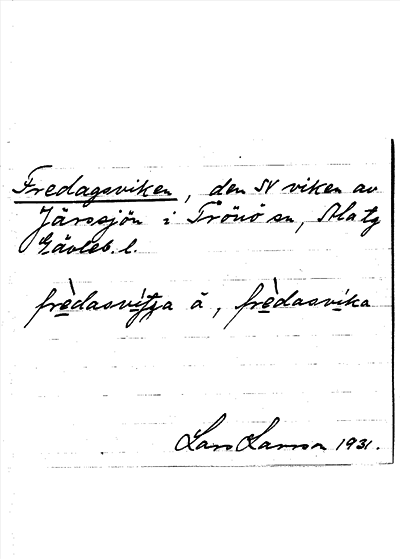 Fredagsviken, den SV viken av
Järssjön i Trönö sn, Ala tg
Gävleb. l.
frèdasvítja å, frèdasvíka
Lars Larsson 1931.